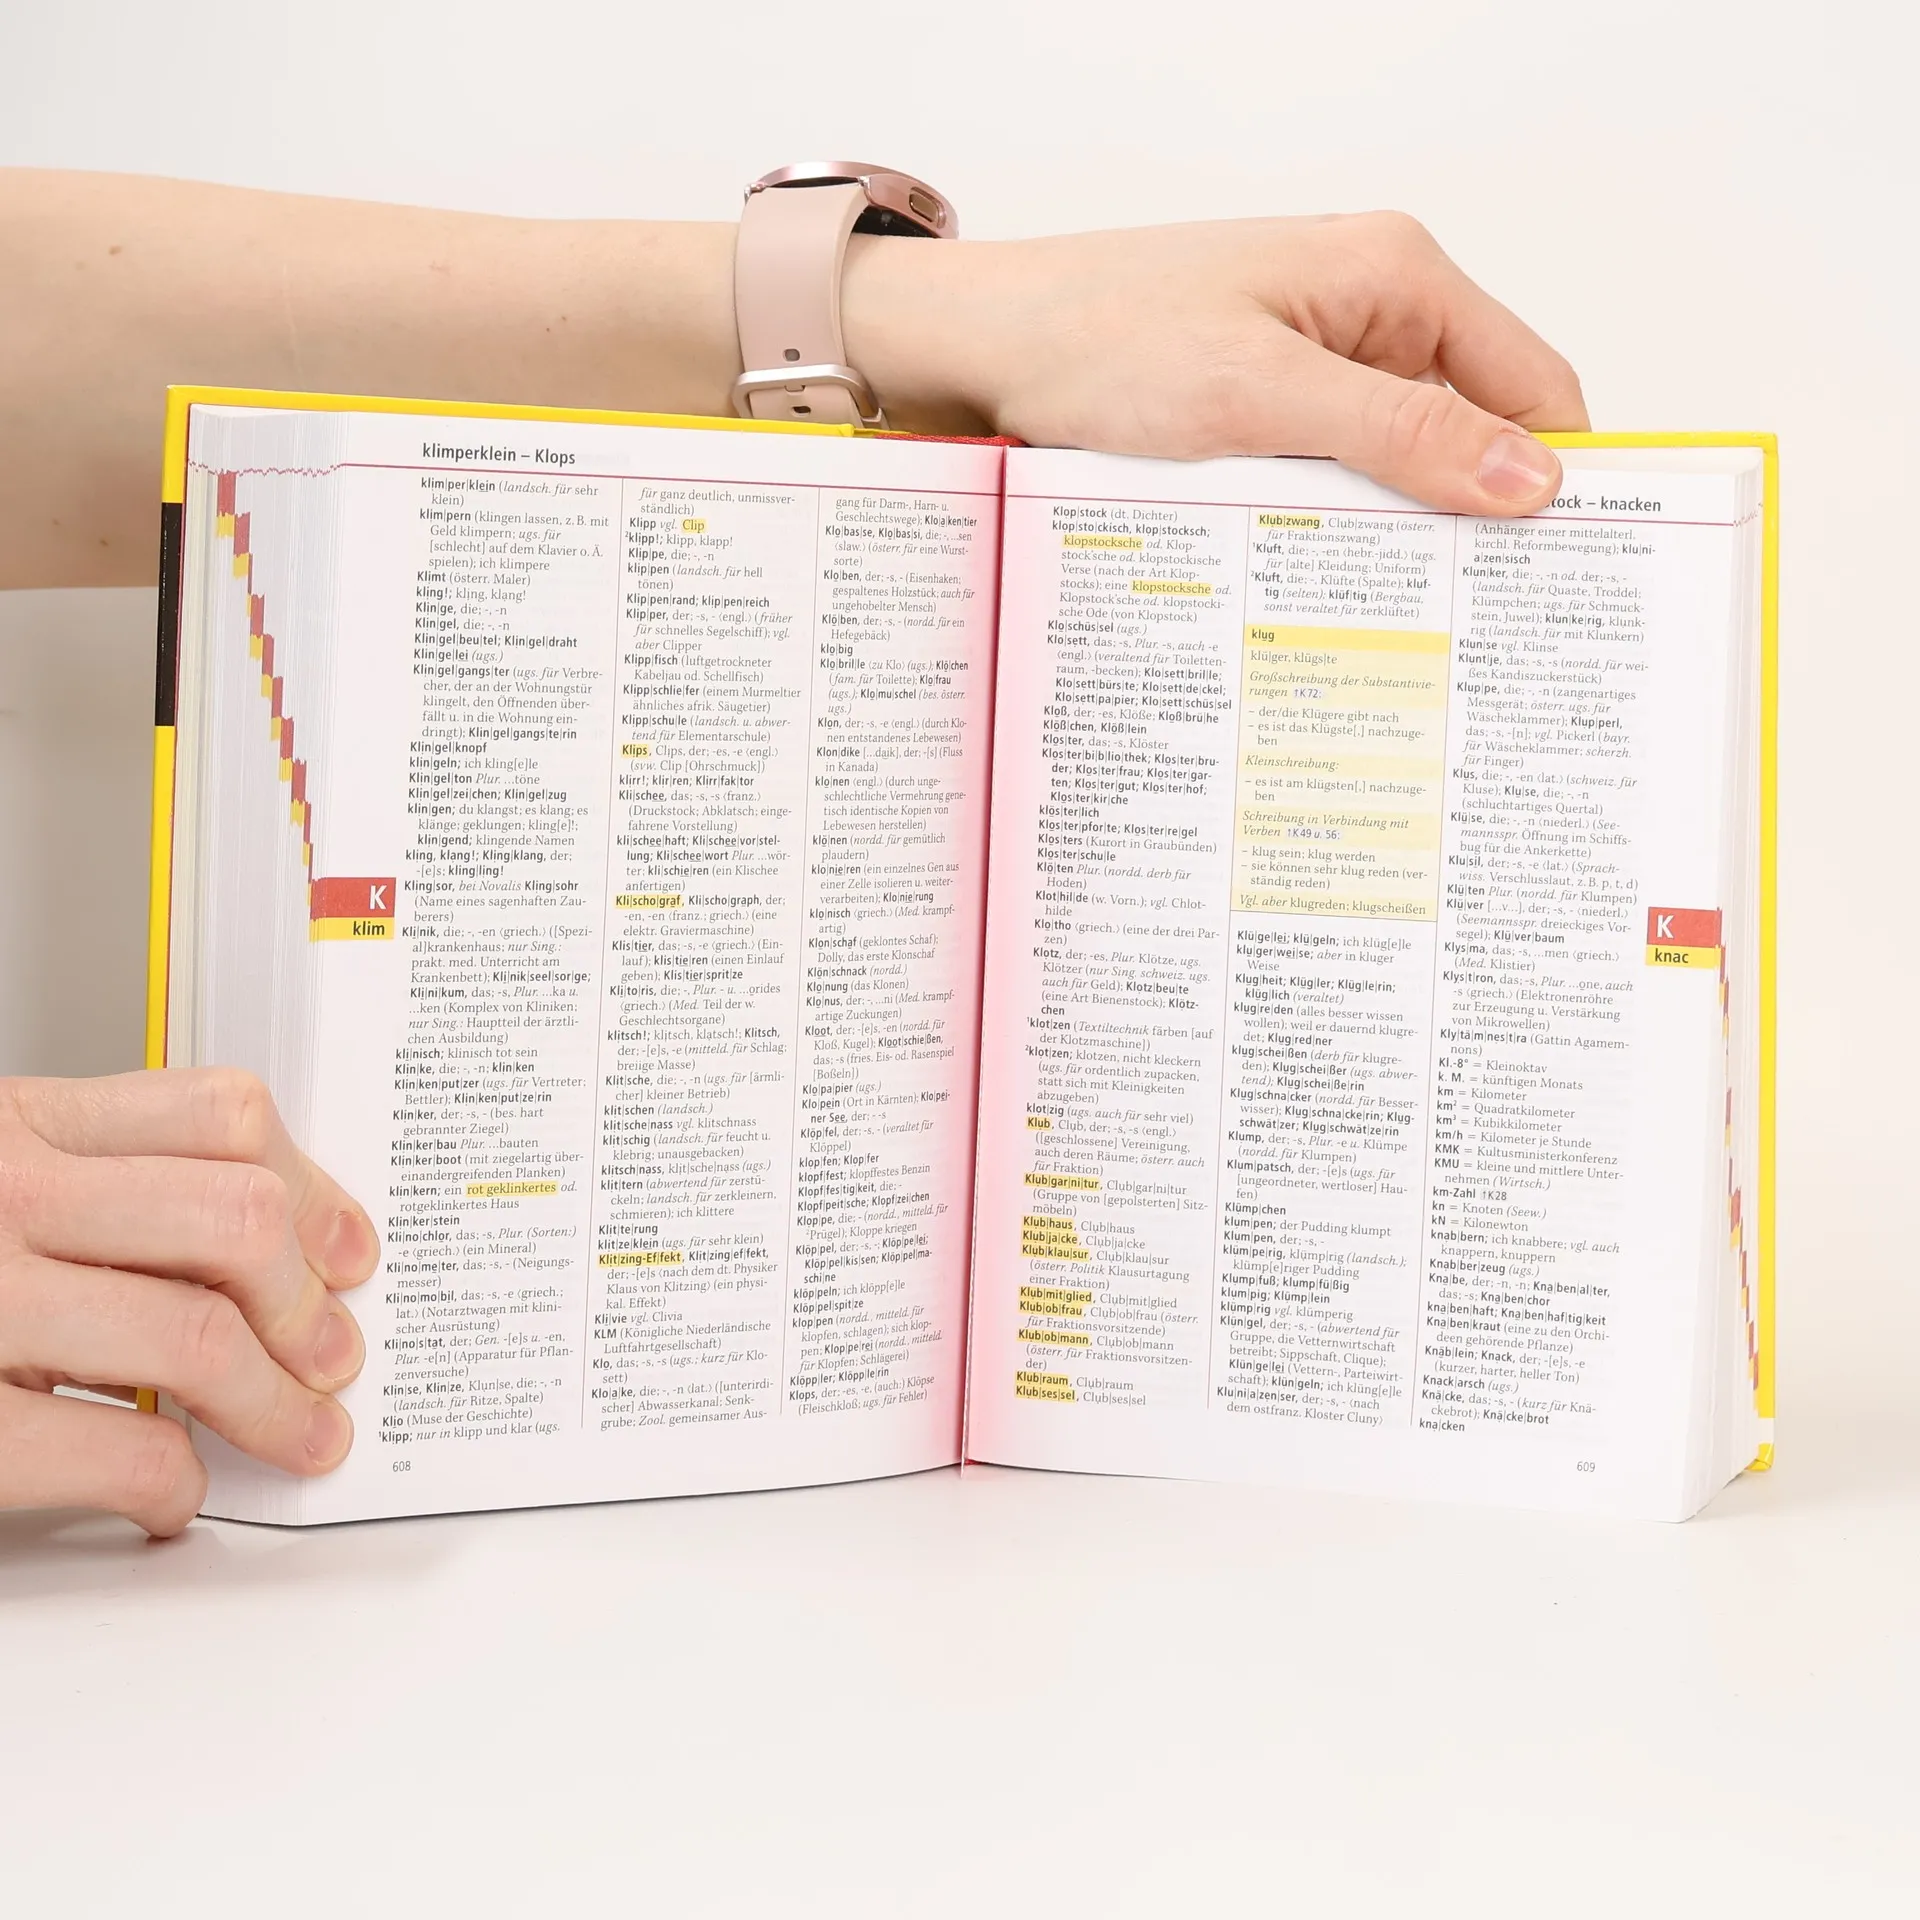 klimperklein – Klops
klim|per|klein (landsch. für sehr
klein)
klim|pern (klingen lassen, z. B. mit
Geld klimpern; ugs. für
[schlecht] auf dem Klavier o. Ä.
spielen); ich klimpere
Klimt (österr. Maler)
kling!; kling, klang!
Klin|ge, die; -, -n
Klin|gel, die; -, -n
Klin|gel|beu|tel; Klin|gel|draht
Klin|ge|lei (ugs.)
Klin|gel|gangs|ter (ugs. für Verbre-
cher, der an der Wohnungstür
klingelt, den Öffnenden über-
fällt u. in die Wohnung ein-
dringt); Klin|gel|gangs|te|rin
Klin|gel|knopf
klin|geln; ich kling[e]le
Klin|gel|ton Plur. ...töne
Klin|gel|zei|chen; Klin|gel|zug
klin|gen; du klangst; es klang; es
klänge; geklungen; kling[e]!;
klin|gend; klingende Namen
kling, klang!; Kling|klang, der;
-[e]s; kling|ling!
Kling|sor, bei Novalis Kling|sohr
(Name eines sagenhaften Zau-
berers)
Kli|nik, die; -, -en ⟨griech.⟩ ([Spezi-
al]krankenhaus; nur Sing.:
prakt. med. Unterricht am
Krankenbett); Kli|nik|seel|sor|ge;
Kli|ni|kum, das; -s, Plur. ...ka u.
...ken (Komplex von Kliniken;
nur Sing.: Hauptteil der ärztli-
chen Ausbildung)
kli|nisch; klinisch tot sein
Klin|ke, die; -, -n; klin|ken
Klin|ken|put|zer (ugs. für Vertreter;
Bettler); Klin|ken|put|ze|rin
Klin|ker, der; -s, - (bes. hart
gebrannter Ziegel)
Klin|ker|bau Plur. ...bauten
Klin|ker|boot (mit ziegelartig über-
einandergreifenden Planken)
klin|kern; ein rot geklinkertes od.
rotgeklinkertes Haus
Klin|ker|stein
Kli|no|chlor, das; -s, Plur. (Sorten:)
-e ⟨griech.⟩ (ein Mineral)
Kli|no|me|ter, das; -s, - (Neigungs-
messer)
Kli|no|mo|bil, das; -s, -e ⟨griech.;
lat.⟩ (Notarztwagen mit klini-
scher Ausrüstung)
Kli|no|s|tat, der; Gen. -[e]s u. -en,
Plur. -e[n] (Apparatur für Pflan-
zenversuche)
Klin|se, Klin|ze, Klun|se, die; -, -n
(landsch. für Ritze, Spalte)
Klio (Muse der Geschichte)
¹klipp; nur in klipp und klar (ugs.
für ganz deutlich, unmissver-
ständlich)
Klipp vgl. Clip
²klipp!; klipp, klapp!
Klip|pe, die; -, -n
klip|pen (landsch. für hell
tönen)
Klip|pen|rand; klip|pen|reich
Klip|per, der; -s, - ⟨engl.⟩ (früher
für schnelles Segelschiff); vgl.
aber Clipper
Klipp|fisch (luftgetrockneter
Kabeljau od. Schellfisch)
Klipp|schlie|fer (einem Murmeltier
ähnliches afrik. Säugetier)
Klipp|schu|le (landsch. u. abwer-
tend für Elementarschule)
Klips, Clips, der; -es, -e ⟨engl.⟩
(svw. Clip [Ohrschmuck])
klirr!; klir|ren; Klirr|fak|tor
Kli|schee, das; -s, -s ⟨franz.⟩
(Druckstock; Abklatsch; einge-
fahrene Vorstellung)
kli|schee|haft; Kli|schee|vor|stel-
lung; Kli|schee|wort Plur. ...wör-
ter; kli|schie|ren (ein Klischee
anfertigen)
Kli|scho|graf, Kli|scho|graph, der;
-en, -en ⟨franz.; griech.⟩ (eine
elektr. Graviermaschine)
Klis|tier, das; -s, -e ⟨griech.⟩ (Ein-
lauf); klis|tie|ren (einen Einlauf
geben); Klis|tier|sprit|ze
Kli|to|ris, die; -, Plur. - u. ...orides
⟨griech.⟩ (Med. Teil der w.
Geschlechtsorgane)
klitsch!; klitsch, klatsch!; Klitsch,
der; -[e]s, -e (mitteld. für Schlag;
breiige Masse)
Klit|sche, die; -, -n (ugs. für [ärmli-
cher] kleiner Betrieb)
klit|schen (landsch.)
klit|sche|nass vgl. klitschnass
klit|schig (landsch. für feucht u.
klebrig; unausgebacken)
klitsch|nass, klit|sche|nass (ugs.)
klit|tern (abwertend für zerstü-
ckeln; landsch. für zerkleinern,
schmieren); ich klittere
Klit|te|rung
klit|ze|klein (ugs. für sehr klein)
Klit|zing-Ef|fekt, Klit|zing|ef|fekt,
der; -[e]s ⟨nach dem dt. Physiker
Klaus von Klitzing⟩ (ein physi-
kal. Effekt)
Kli|vie vgl. Clivia
KLM (Königliche Niederländische
Luftfahrtgesellschaft)
Klo, das; -s, -s (ugs.; kurz für Klo-
sett)
Klo|a|ke, die; -, -n ⟨lat.⟩ ([unterirdi-
scher] Abwasserkanal; Senk-
grube; Zool. gemeinsamer Aus-
gang für Darm-, Harn- u.
Geschlechtswege); Klo|a|ken|tier
Klo|bas|se, Klo|bas|si, die; -, ...sen
⟨slaw.⟩ (österr. für eine Wurst-
sorte)
Klo|ben, der; -s, - (Eisenhaken;
gespaltenes Holzstück; auch für
ungehobelter Mensch)
Klö|ben, der; -s, - (nordd. für ein
Hefegebäck)
klo|big
Klo|bril|le ⟨zu Klo⟩ (ugs.); Klö|chen
(fam. für Toilette); Klo|frau
(ugs.); Klo|mu|schel (bes. österr.
ugs.)
Klon, der; -s, -e ⟨engl.⟩ (durch Klo-
nen entstandenes Lebewesen)
Klon|dike [...daik], der; -[s] (Fluss
in Kanada)
klo|nen ⟨engl.⟩ (durch unge-
schlechtliche Vermehrung gene-
tisch identische Kopien von
Lebewesen herstellen)
klö|nen (nordd. für gemütlich
plaudern)
klo|nie|ren (ein einzelnes Gen aus
einer Zelle isolieren u. weiter-
verarbeiten); Klo|nie|rung
klo|nisch ⟨griech.⟩ (Med. krampf-
artig)
Klon|schaf (geklontes Schaf);
Dolly, das erste Klonschaf
Klön|schnack (nordd.)
Klo|nung (das Klonen)
Klo|nus, der; -, ...ni (Med. krampf-
artige Zuckungen)
Kloot, der; -[e]s, -en (nordd. für
Kloß, Kugel); Kloot|schie|ßen,
das; -s (fries. Eis- od. Rasenspiel
[Boßeln])
Klo|pa|pier (ugs.)
Klo|pein (Ort in Kärnten); Klo|pei-
ner See, der; - -s
Klöp|fel, der; -s, - (veraltet für
Klöppel)
klop|fen; Klop|fer
klopf|fest; klopffestes Benzin
Klopf|fes|tig|keit, die; -
Klopf|peit|sche; Klopf|zei|chen
Klop|pe, die; - (nordd., mitteld. für
²Prügel); Kloppe kriegen
Klöp|pel, der; -s, -; Klöp|pe|lei;
Klöp|pel|kis|sen; Klöp|pel|ma-
schi|ne
klöp|peln; ich klöpp[e]le
Klöp|pel|spit|ze
klop|pen (nordd., mitteld. für
klopfen, schlagen); sich klop-
pen; Klop|pe|rei (nordd., mitteld.
für Klopfen; Schlägerei)
Klöpp|ler; Klöpp|le|rin
Klops, der; -es, -e, (auch:) Klöpse
(Fleischkloß; ugs. für Fehler)
K
klim
608
tock – knacken
Klop|stock (dt. Dichter)
klop|sto|ckisch, klop|stocksch;
klopstocksche od. Klop-
stock'sche od. klopstockische
Verse (nach der Art Klop-
stocks); eine klopstocksche od.
Klopstock'sche od. klopstocki-
sche Ode (von Klopstock)
Klo|schüs|sel (ugs.)
Klo|sett, das; -s, Plur. -s, auch -e
⟨engl.⟩ (veraltend für Toiletten-
raum, -becken); Klo|sett|bril|le;
Klo|sett|bürs|te; Klo|sett|de|ckel;
Klo|sett|pa|pier; Klo|sett|schüs|sel
Kloß, der; -es, Klöße; Kloß|brü|he
Klöß|chen, Klöß|lein
Klos|ter, das; -s, Klöster
Klos|ter|bi|b|lio|thek; Klos|ter|bru-
der; Klos|ter|frau; Klos|ter|gar-
ten; Klos|ter|gut; Klos|ter|hof;
Klos|ter|kir|che
klös|ter|lich
Klos|ter|pfor|te; Klos|ter|re|gel
Klos|ters (Kurort in Graubünden)
Klos|ter|schu|le
Klö|ten Plur. (nordd. derb für
Hoden)
Klot|hil|de (w. Vorn.); vgl. Chlot-
hilde
Klo|tho ⟨griech.⟩ (eine der drei Par-
zen)
Klotz, der; -es, Plur. Klötze, ugs.
Klötzer (nur Sing. schweiz. ugs.
auch für Geld); Klotz|beu|te
(eine Art Bienenstock); Klötz-
chen
¹klot|zen (Textiltechnik färben [auf
der Klotzmaschine])
²klot|zen; klotzen, nicht kleckern
(ugs. für ordentlich zupacken,
statt sich mit Kleinigkeiten
abzugeben)
klot|zig (ugs. auch für sehr viel)
Klub, Club, der; -s, -s ⟨engl.⟩
([geschlossene] Vereinigung,
auch deren Räume; österr. auch
für Fraktion)
Klub|gar|ni|tur, Club|gar|ni|tur
(Gruppe von [gepolsterten] Sitz-
möbeln)
Klub|haus, Club|haus
Klub|ja|cke, Club|ja|cke
Klub|klau|sur, Club|klau|sur
(österr. Politik Klausurtagung
einer Fraktion)
Klub|mit|glied, Club|mit|glied
Klub|ob|frau, Club|ob|frau (österr.
für Fraktionsvorsitzende)
Klub|ob|mann, Club|ob|mann
(österr. für Fraktionsvorsitzen-
der)
Klub|raum, Club|raum
Klub|ses|sel, Club|ses|sel
Klub|zwang, Club|zwang (österr.
für Fraktionszwang)
¹Kluft, die; -, -en ⟨hebr.-jidd.⟩ (ugs.
für [alte] Kleidung; Uniform)
²Kluft, die; -, Klüfte (Spalte); kluf-
tig (selten); klüf|tig (Bergbau,
sonst veraltet für zerklüftet)
klug
klü|ger, klügs|te
Großschreibung der Substantivie-
rungen ↑K 72:
– der/die Klügere gibt nach
– es ist das Klügste[,] nachzuge-
ben
Kleinschreibung:
– es ist am klügsten[,] nachzuge-
ben
Schreibung in Verbindung mit
Verben ↑K 49 u. 56:
– klug sein; klug werden
– sie können sehr klug reden (ver-
ständig reden)
Vgl. aber klugreden; klugscheißen
Klü|ge|lei; klü|geln; ich klüg[e]le
klu|ger|wei|se; aber in kluger
Weise
Klug|heit; Klüg|ler; Klüg|le|rin;
klüg|lich (veraltet)
klug|re|den (alles besser wissen
wollen); weil er dauernd klugre-
det; Klug|red|ner
klug|schei|ßen (derb für klugre-
den); Klug|schei|ßer (ugs. abwer-
tend); Klug|schei|ße|rin
Klug|schna|cker (nordd. für Besser-
wisser); Klug|schna|cke|rin; Klug-
schwät|zer; Klug|schwät|ze|rin
Klump, der; -s, Plur. -e u. Klümpe
(nordd. für Klumpen)
Klum|patsch, der; -[e]s (ugs. für
[ungeordneter, wertloser] Hau-
fen)
Klümp|chen
klum|pen; der Pudding klumpt
Klum|pen, der; -s, -
klüm|pe|rig, klümp|rig (landsch.);
klümp[e]riger Pudding
Klump|fuß; klump|fü|ßig
klum|pig; Klümp|lein
klümp|rig vgl. klümperig
Klün|gel, der; -s, - (abwertend für
Gruppe, die Vetternwirtschaft
betreibt; Sippschaft, Clique);
Klün|ge|lei (Vettern-, Parteiwirt-
schaft); klün|geln; ich klüng[e]le
Klu|ni|a|zen|ser, der; -s, - ⟨nach
dem ostfranz. Kloster Cluny⟩
(Anhänger einer mittelalterl.
kirchl. Reformbewegung); klu|ni-
a|zen|sisch
Klun|ker, die; -, -n od. der; -s, -
(landsch. für Quaste, Troddel;
Klümpchen; ugs. für Schmuck-
stein, Juwel); klun|ke|rig, klunk-
rig (landsch. für mit Klunkern)
Klun|se vgl. Klinse
Klunt|je, das; -s, -s (nordd. für wei-
ßes Kandiszuckerstück)
Klup|pe, die; -, -n (zangenartiges
Messgerät; österr. ugs. für
Wäscheklammer); Klup|perl,
das; -s, -[n]; vgl. Pickerl (bayr.
für Wäscheklammer; scherzh.
für Finger)
Klus, die; -, -en ⟨lat.⟩ (schweiz. für
Kluse); Klu|se, die; -, -n
(schluchtartiges Quertal)
Klü|se, die; -, -n ⟨niederl.⟩ (See-
mannsspr. Öffnung im Schiffs-
bug für die Ankerkette)
Klu|sil, der; -s, -e ⟨lat.⟩ (Sprach-
wiss. Verschlusslaut, z. B. p, t, d)
Klü|ten Plur. (nordd. für Klumpen)
Klü|ver [...v...], der; -s, - ⟨niederl.⟩
(Seemannsspr. dreieckiges Vor-
segel); Klü|ver|baum
Klys|ma, das; -s, ...men ⟨griech.⟩
(Med. Klistier)
Klys|t|ron, das; -s, Plur. ...one, auch
-s ⟨griech.⟩ (Elektronenröhre
zur Erzeugung u. Verstärkung
von Mikrowellen)
Kly|tä|m|nes|t|ra (Gattin Agamem-
nons)
Kl.-8° = Kleinoktav
k. M. = künftigen Monats
km = Kilometer
km² = Quadratkilometer
km³ = Kubikkilometer
km/h = Kilometer je Stunde
KMK = Kultusministerkonferenz
KMU = kleine und mittlere Unter-
nehmen (Wirtsch.)
km-Zahl ↑K 28
kn = Knoten (Seew.)
kN = Kilonewton
knab|bern; ich knabbere; vgl. auch
knappern, knuppern
Knab|ber|zeug (ugs.)
Kna|be, der; -n, -n; Kna|ben|al|ter,
das; -s; Kna|ben|chor
kna|ben|haft; Kna|ben|haf|tig|keit
Kna|ben|kraut (eine zu den Orchi-
deen gehörende Pflanze)
Knäb|lein; Knack, der; -[e]s, -e
(kurzer, harter, heller Ton)
Knack|arsch (ugs.)
Knä|cke, das; -s, - (kurz für Knä-
ckebrot); Knä|cke|brot
kna|cken
K
knac
609